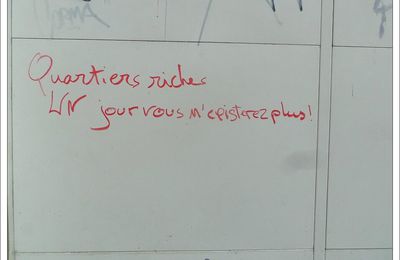 Quartiers riches
UN jour vous N'existerez plus!